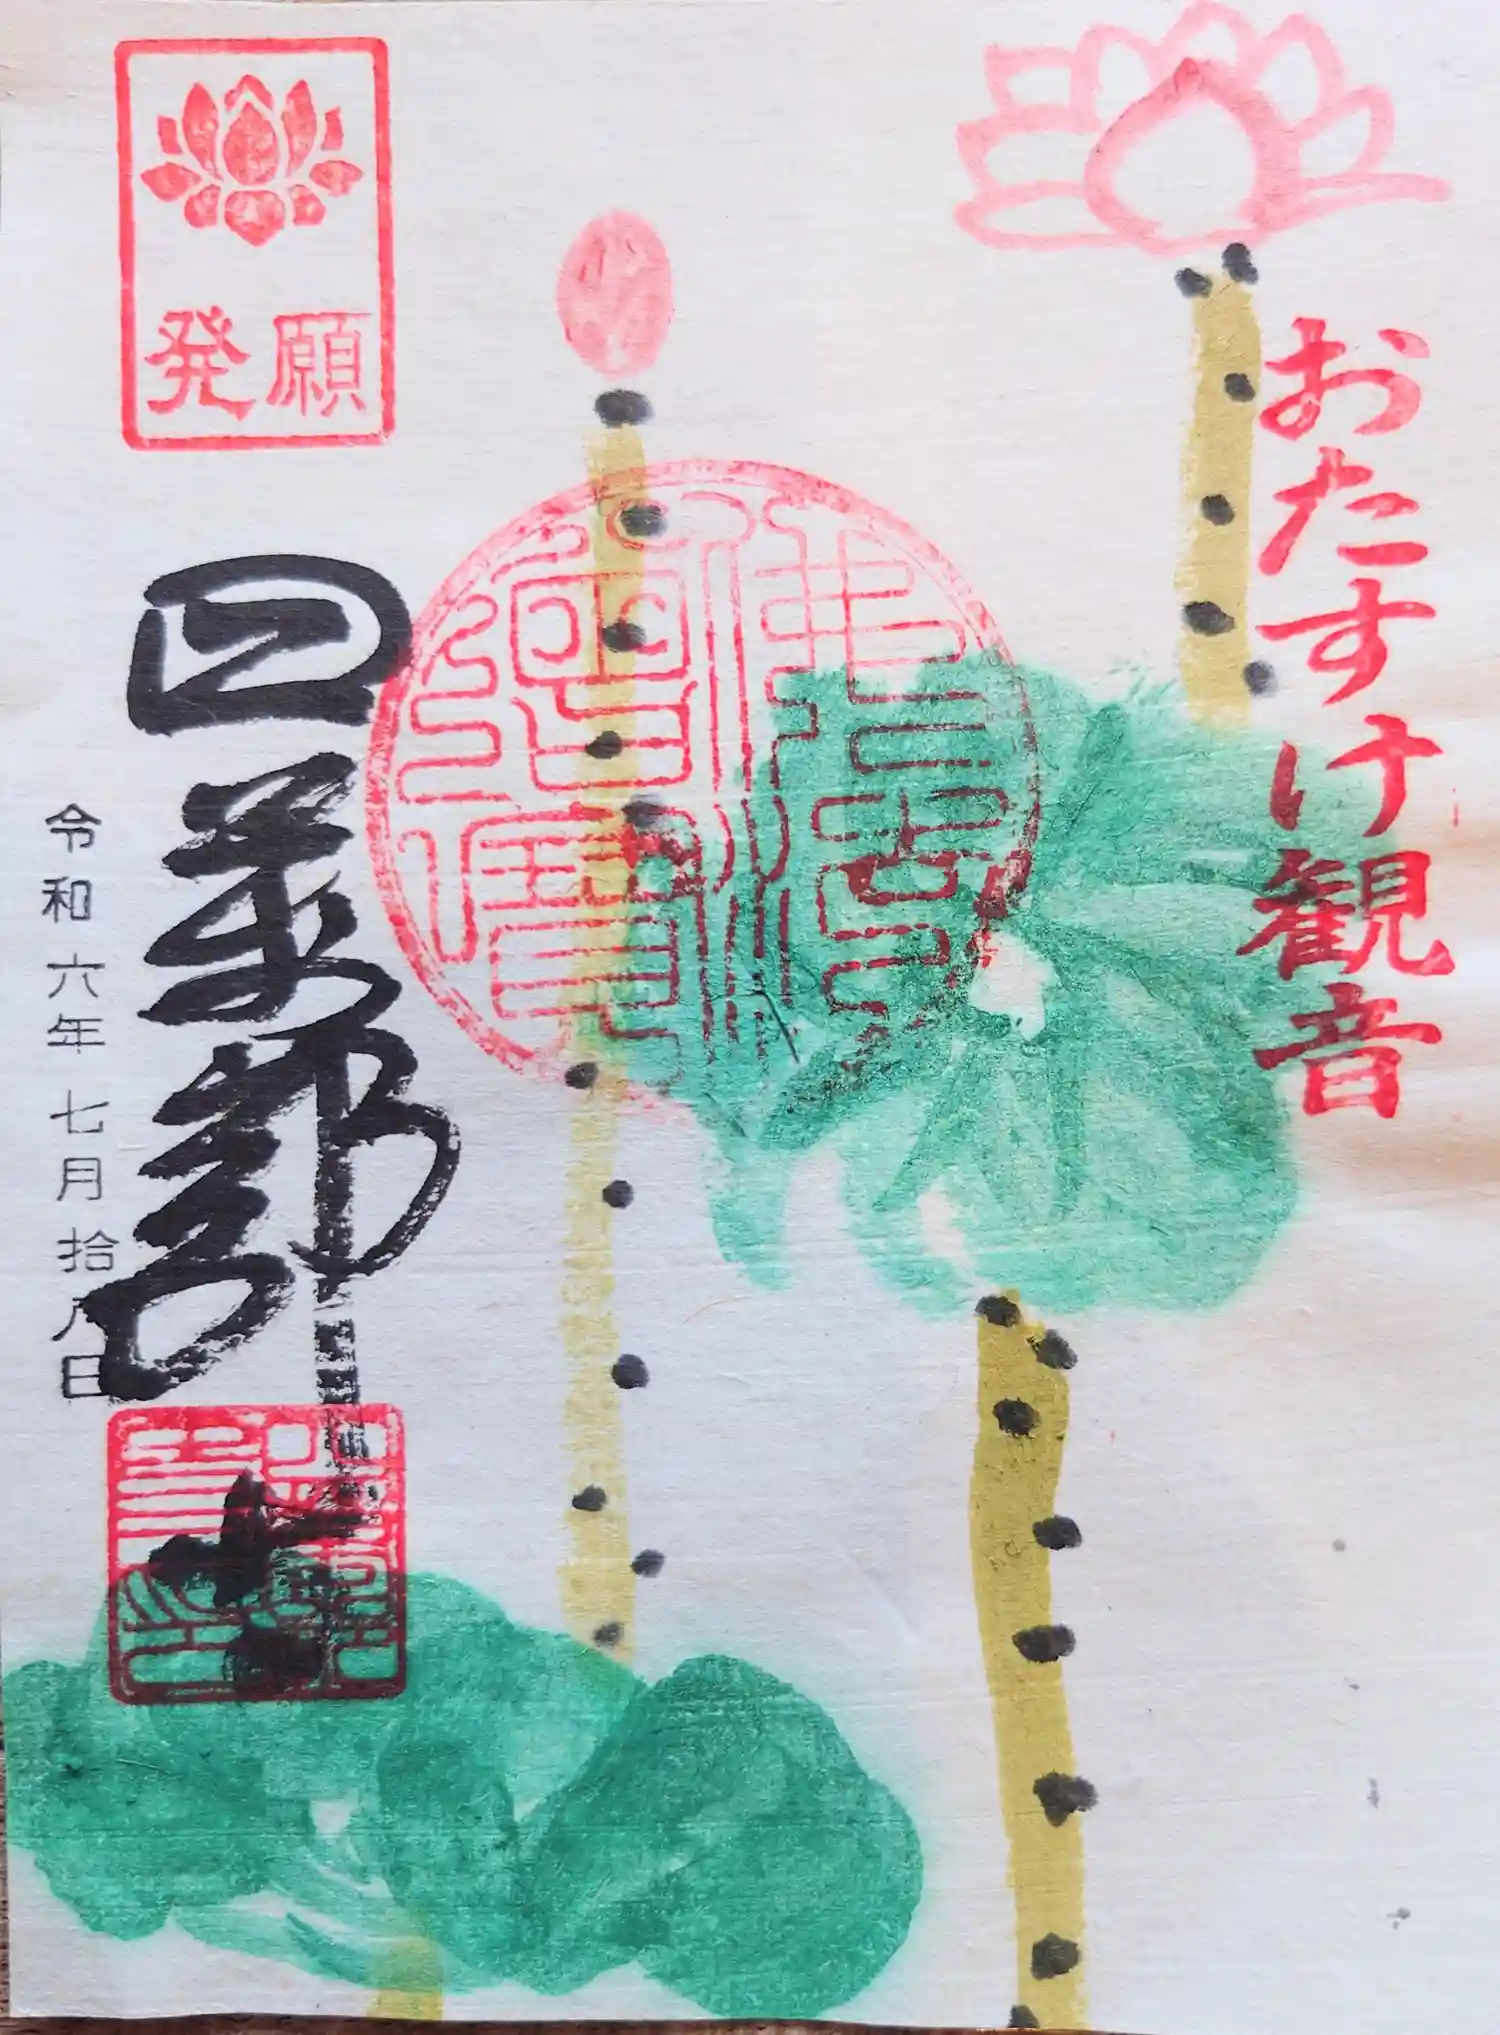 おたすけ観音
発願
四萬部寺
令和六年七月拾八日